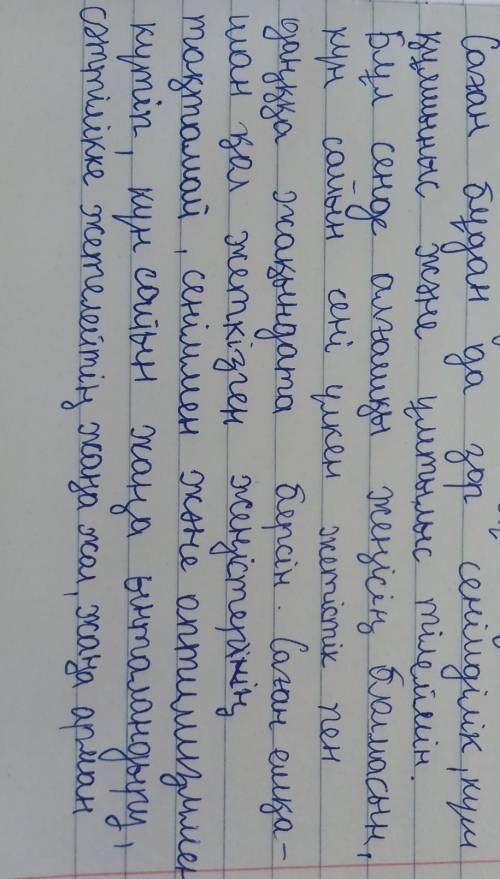 Саған бұдан да зор сенімділік, күш
құлшыныс және ұмтылыс тілеймін.
Бұл сенде алғашқы жеңісің болмасын,
күн сайын сені үлкен жетістік пен
даңққа жақындата берсін. Саған ешқа-
шан қол жеткізген жеңістеріңнің
тоқтамай, сеніммен және оптимизммен
күтіп, күн сайын жаңа ынталандыру,
сәттілікке жетелейтің жаңа жол, жаңа арман